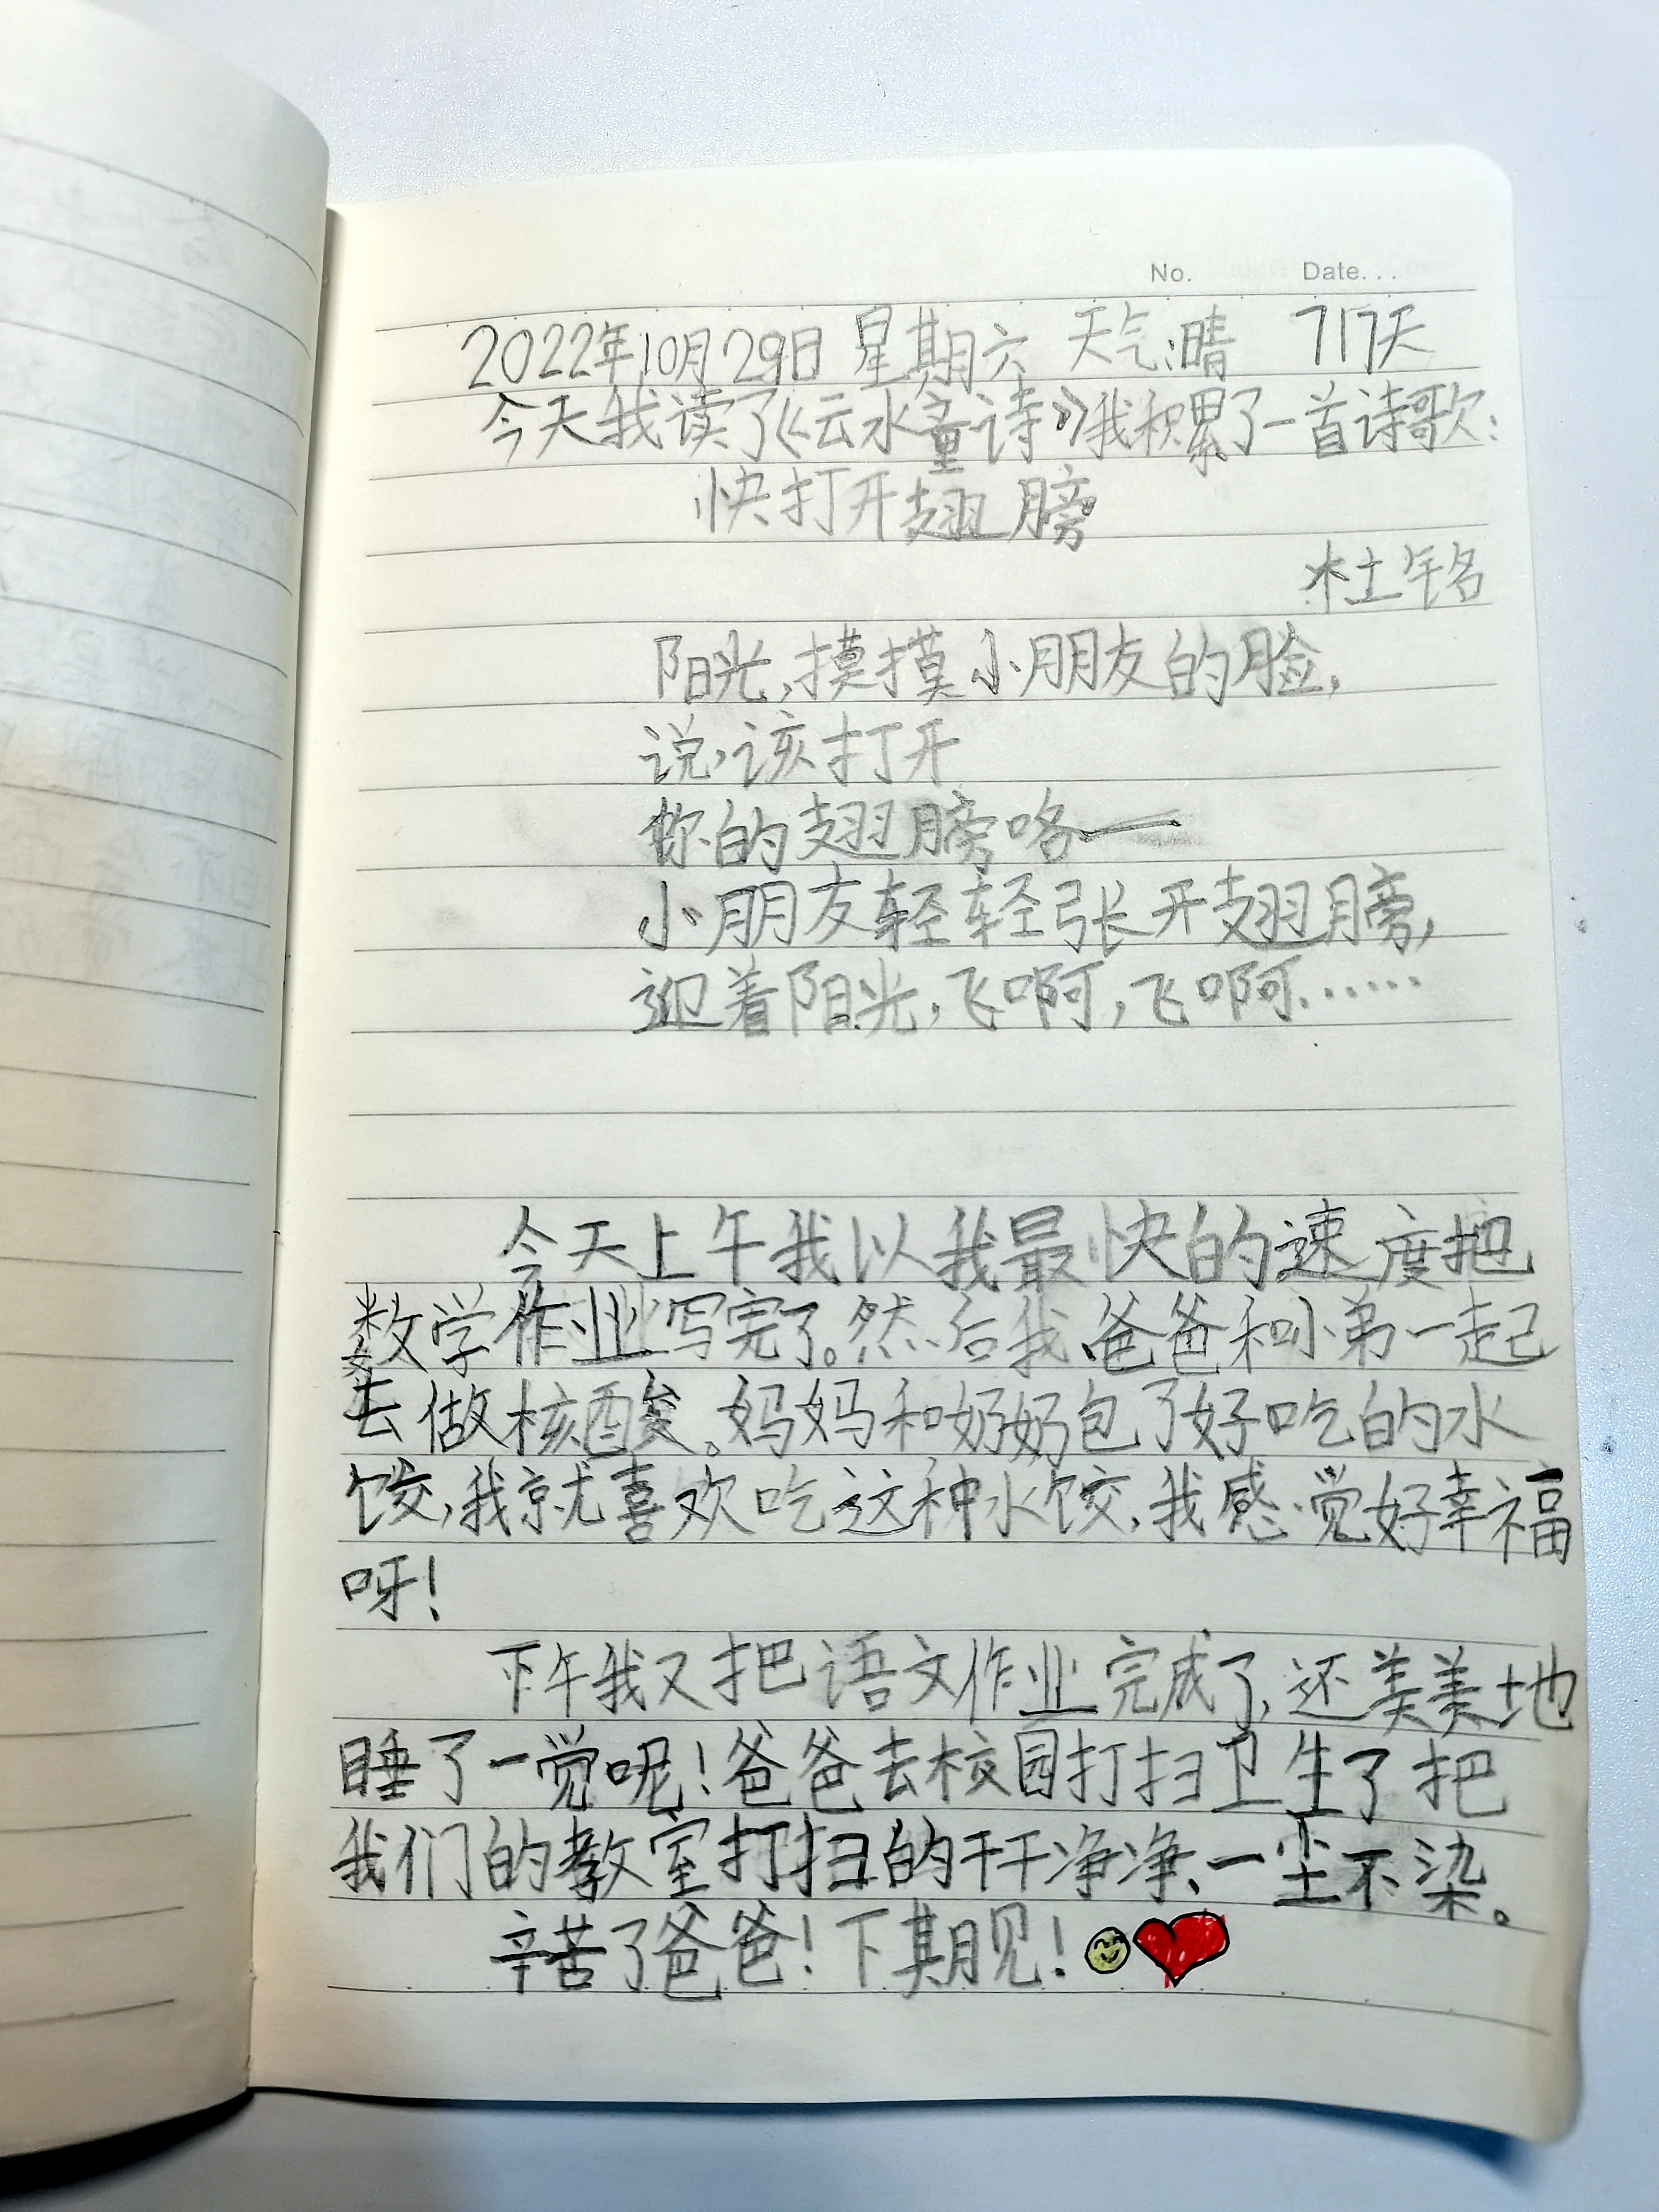 No. Date...
2022年10月29日 星期六 天气:晴 717天
今天我读了《云水童诗》我积累了一首诗歌:
快打开翅膀
杜铭
阳光,摸摸小朋友的脸,
说,该打开
你的翅膀咯——
小朋友轻轻张开翅膀,
迎着阳光,飞啊,飞啊……
今天上午我以我最快的速度把
数学作业写完了。然后我爸爸和小弟一起
去做核酸。妈妈和奶奶包了好吃的水
饺,我就喜欢吃这种水饺,我感觉好幸福
呀!
下午我又把语文作业完成了,还美美地
睡了一觉呢!爸爸去校园打扫卫生了把
我们的教室打扫的干干净净、一尘不染。
辛苦了爸爸!下期见!